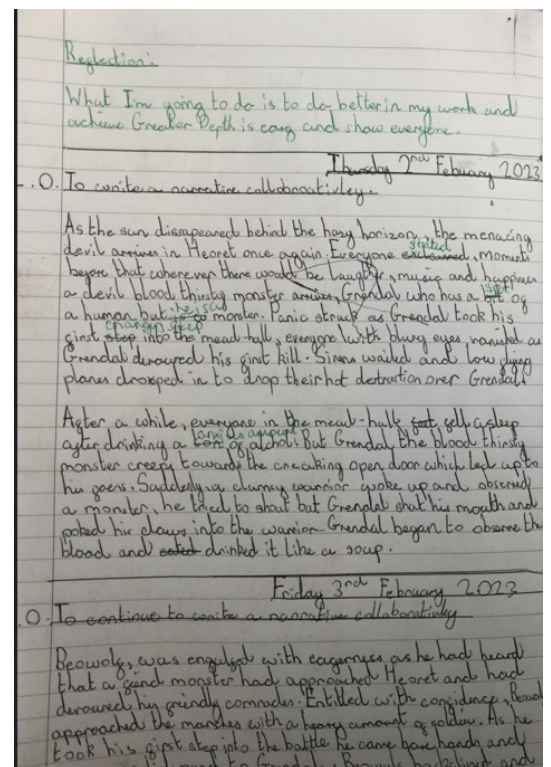 Reflection:
What Im going to do is to do better in my work and
achieve Greater Depth is easy and show everyone.
Thursday 2nd February 2023
.O. To write a narrative collabroativley.
As the sun dissapeared behind the hazy horizon, the menacing
devil arrives in Heorot once again. Everyone exclaimed, moments
before that wherever there would be laughter, music and happiness
a devil blood thirsty monster arrives, Grendal who has a of
a human but is a monster. Panic struck as Grendal took his
first step into the mead-hall, everyone with blury eyes vanished as
Grendal devoured his first kill. Sirens wailed and low flying
planes dropped in to drop their hot destruction over Grendal.
After a while, everyone in the mead-hall feel fell asleep
after drinking a of alchol. But Grendal the blood thirsty
monster creeps towards the creaking open door which led up to
his foers. Suddenly a clumsy warrior woke up and observed
a monster, he tried to shout but Grendal shut his mouth and
poked his claws into the warrior Grendal began to observe the
blood and eated drinked it like a soup.
Friday 3rd February 2023
.O. To continue to write a narrative collaborativley
Beowolf, was engulfed with eagerness as he had heard
that a feind monster had approached Heorot and had
devoured his friendly comrades. Entitled with confidence,
approached the marshes with a heavy amount of soldiers. As he
took his first step into the battle he came bare hands, and
to Grendal. Beowolf and